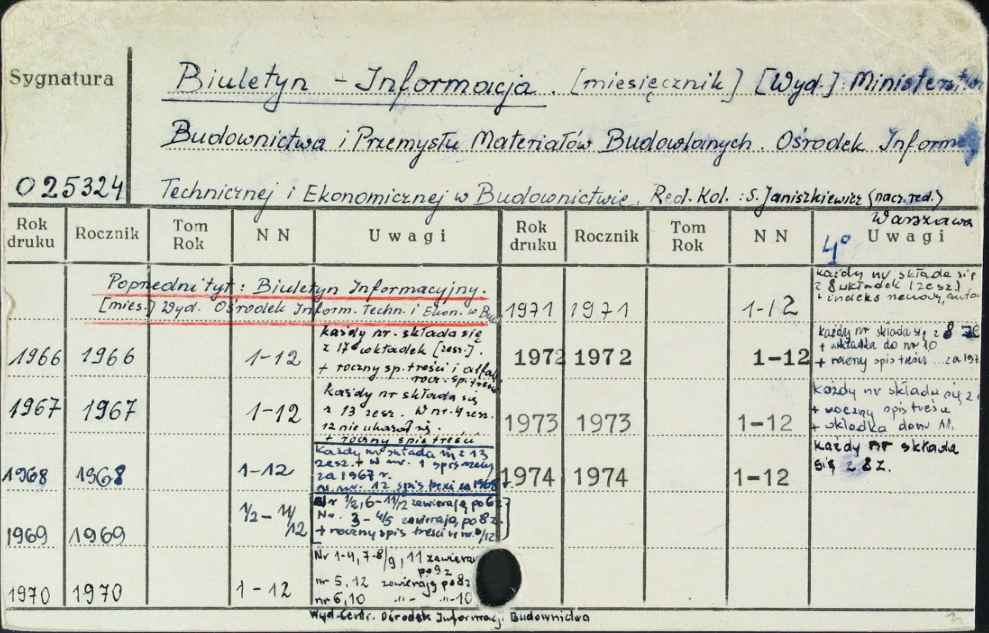 Sygnatura
Biuletyn - Informacja. [miesięcznik] [Wyd.]: Ministerstwo
Budownictwa i Przemysłu Materiałów Budowlanych. Ośrodek Inform.
025324 Technicznej i Ekonomicznej w Budownictwie. Red. Kol.: S. Janiszkiewicz (nacz. red.)
Warszawa
4°
Rok druku Rocznik Tom Rok NN Uwagi Rok druku Rocznik Tom Rok NN Uwagi
Poprzedni tyt: Biuletyn Informacyjny.
[mies.] Wyd. Ośrodek Inform. Techn. i Ekon. w Bud
1966 1966 1-12 każdy nr. składa się
z 17 wkładek [zesz.].
+ roczny sp. treści i alfab.
1967 1967 1-12 każdy nr składa się
z 13 zesz. W nr. 4 zesz.
12 nie ukazał się.
+ roczny spis treści
1968 1968 1-12 każdy nr składa się z 13
zesz. + w nr. 1 spis
za 1967 r.
12 spis treści za 1968
1969 1969 1/2-11/12 Nr 1/2, 6-11/2 zawierają po 6 z.
Nr. 3-4/5 zawierają po 8 z.
+ roczny spis treści w nr. 11/12
1970 1970 1-12 Nr 1-4, 7-8/9, 11 zawiera
po 9 z
nr 5, 12 zawierają po 8 z
nr 6, 10 -"- -"- 10
Wyd. Centr. Ośrodek Informacji Budownictwa
1971 1971 1-12 każdy nr składa się
z 8 wkładek (zesz)
+ indeks
1972 1972 1-12 każdy nr składa się z 8
+ wkładka do nr 10
+ roczny spis treści za 197
1973 1973 1-12 każdy nr składa się z
+ roczny spis treści
+ wkładka do nr 11.
1974 1974 1-12 każdy nr składa
się z 8 z.